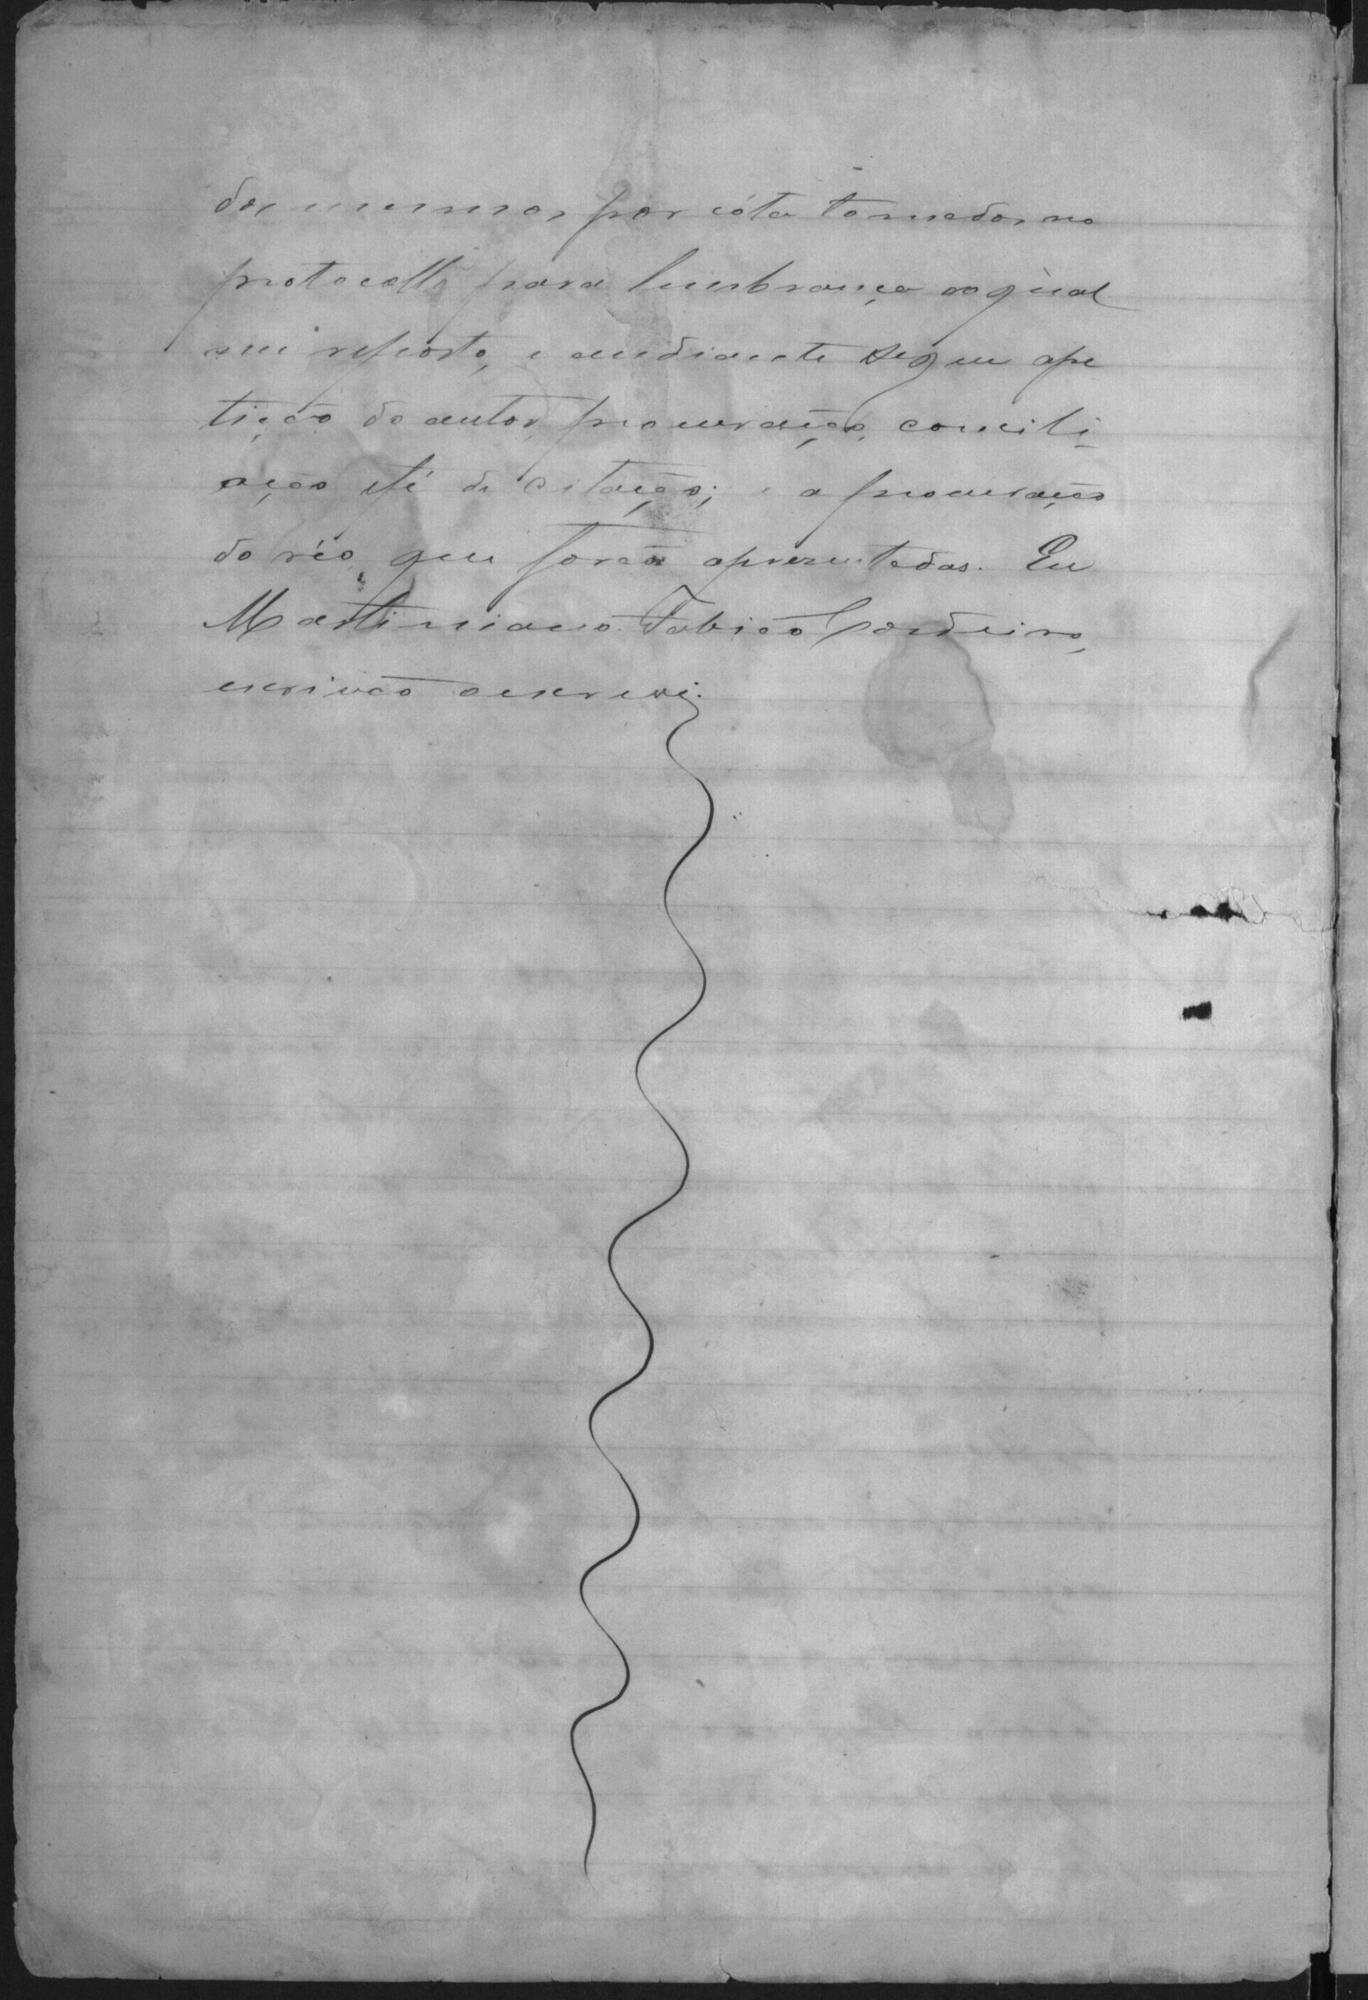 dos mesmos por cóta tomados no
protocollo para lembrança ao qual
me reporto, e andiante segue ape
tição do autor, procuração, concili-
ação fé de citação; e a procuração
do réo que forão aprezentadas. Eu
Martimiano Fabião Cordeiro,
escrivão oescrevi.